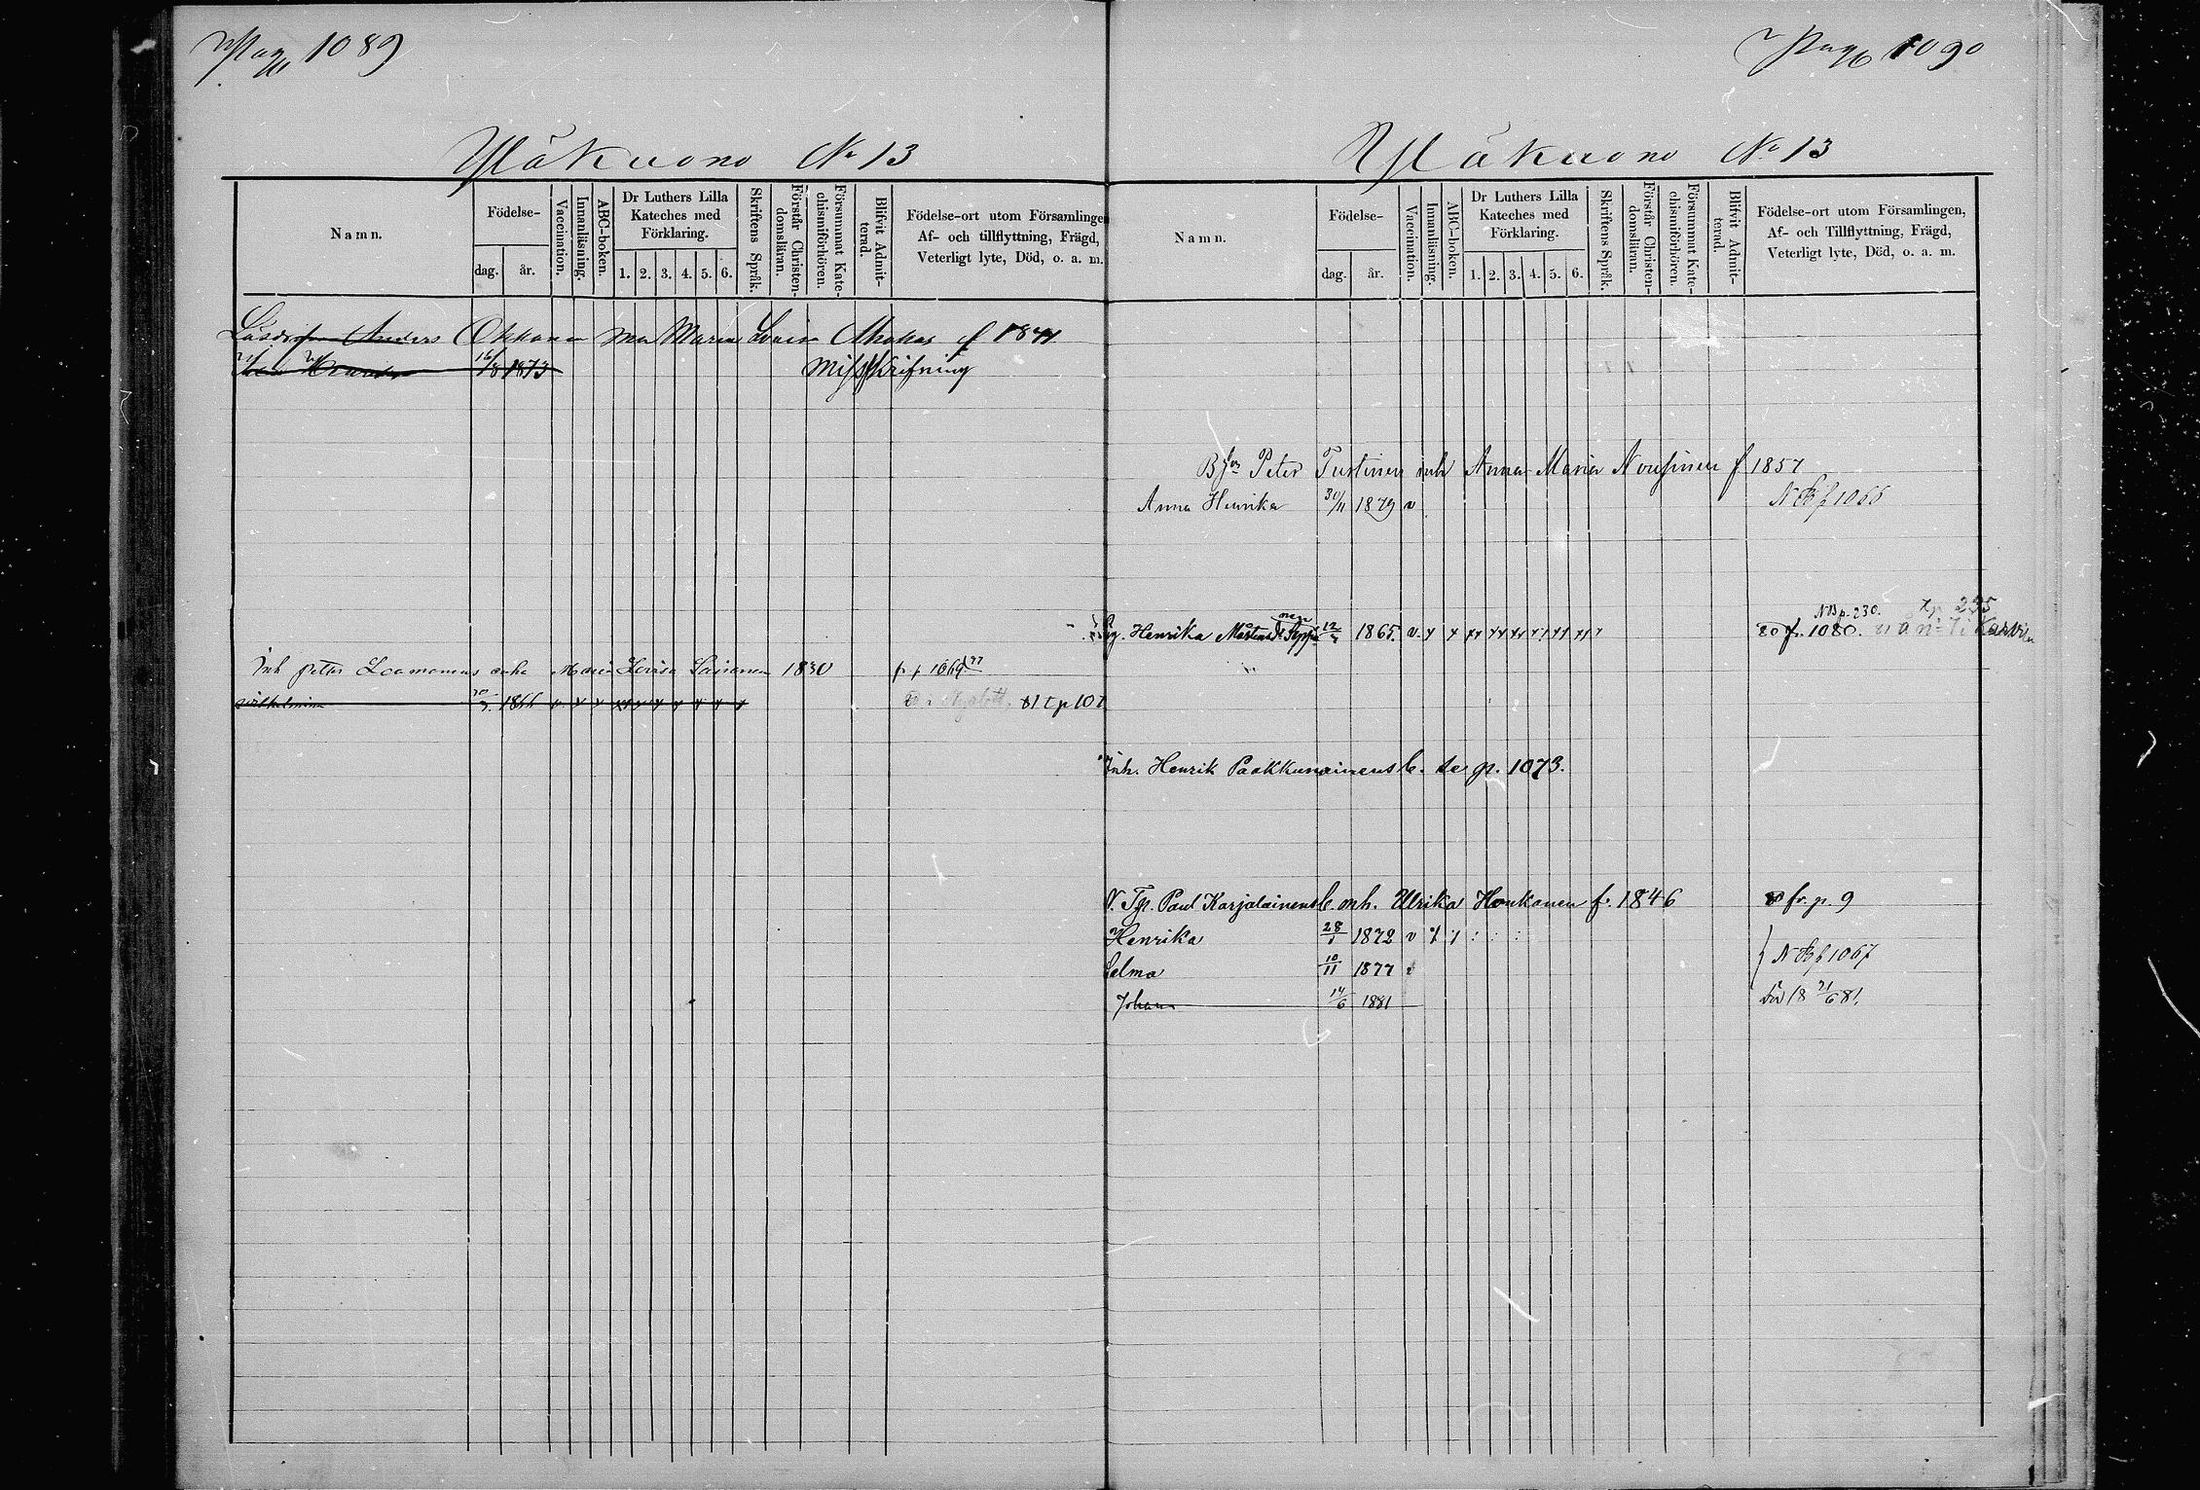 Pag 1089
Yläkuono No 13
Namn.
Födelse-
dag. år.
Vaccination.
Innanläsning.
ABC-boken.
Dr Luthers Lilla Kateches med Förklaring.
1. 2. 3. 4. 5. 6.
Skriftens Språk.
Förstår Christendomsläran.
Försummat Katechismiförhören.
Blifvit Admitterad.
Födelse-ort utom Församlingen
Af- och tillflyttning, Frägd,
Veterligt lyte, Död, o. a. m.
Anders Okkonen Maria Lovisa f 1841
16/8 1873 Misskrifning
Inh Petter Laamanens enka Maria Lovisa 1830 f p 1069
Wilhelmina 1866 v x x x x x x x x x 81 t p 107
Pag 1090
Yläkuono No 13
Namn.
Födelse-
dag. år.
Vaccination.
Innanläsning.
ABC-boken.
Dr Luthers Lilla
Kateches med
Förklaring.
1. 2. 3. 4. 5. 6.
Skriftens Språk.
Förstår Christendomsläran.
Försummat Katechismiförhören.
Blifvit Admitterad.
Födelse-ort utom Församlingen,
Af- och Tillflyttning, Frägd,
Veterligt lyte, Död, o. a. m.
Peter Turtinen och Anna Maria Nousinen f 1857
Anna Henrika 30/11 1879 v NB p 1066
NB p. 230. tp 235
Henrika Mårtensd. 1865. v x x x x x x x x x 80 fr. 1080.
Inh. Henrik Paakkunainens b. se p. 1073.
V. Tp. Paul Karjalainens b. mh. Ulrika Honkanen f. 1846 fr. p. 9
Henrika 28/1 1872 v x x : : :
Selma 10/11 1877 v NB p 1067
Johan 14/6 1881 död 18 21/6 81.